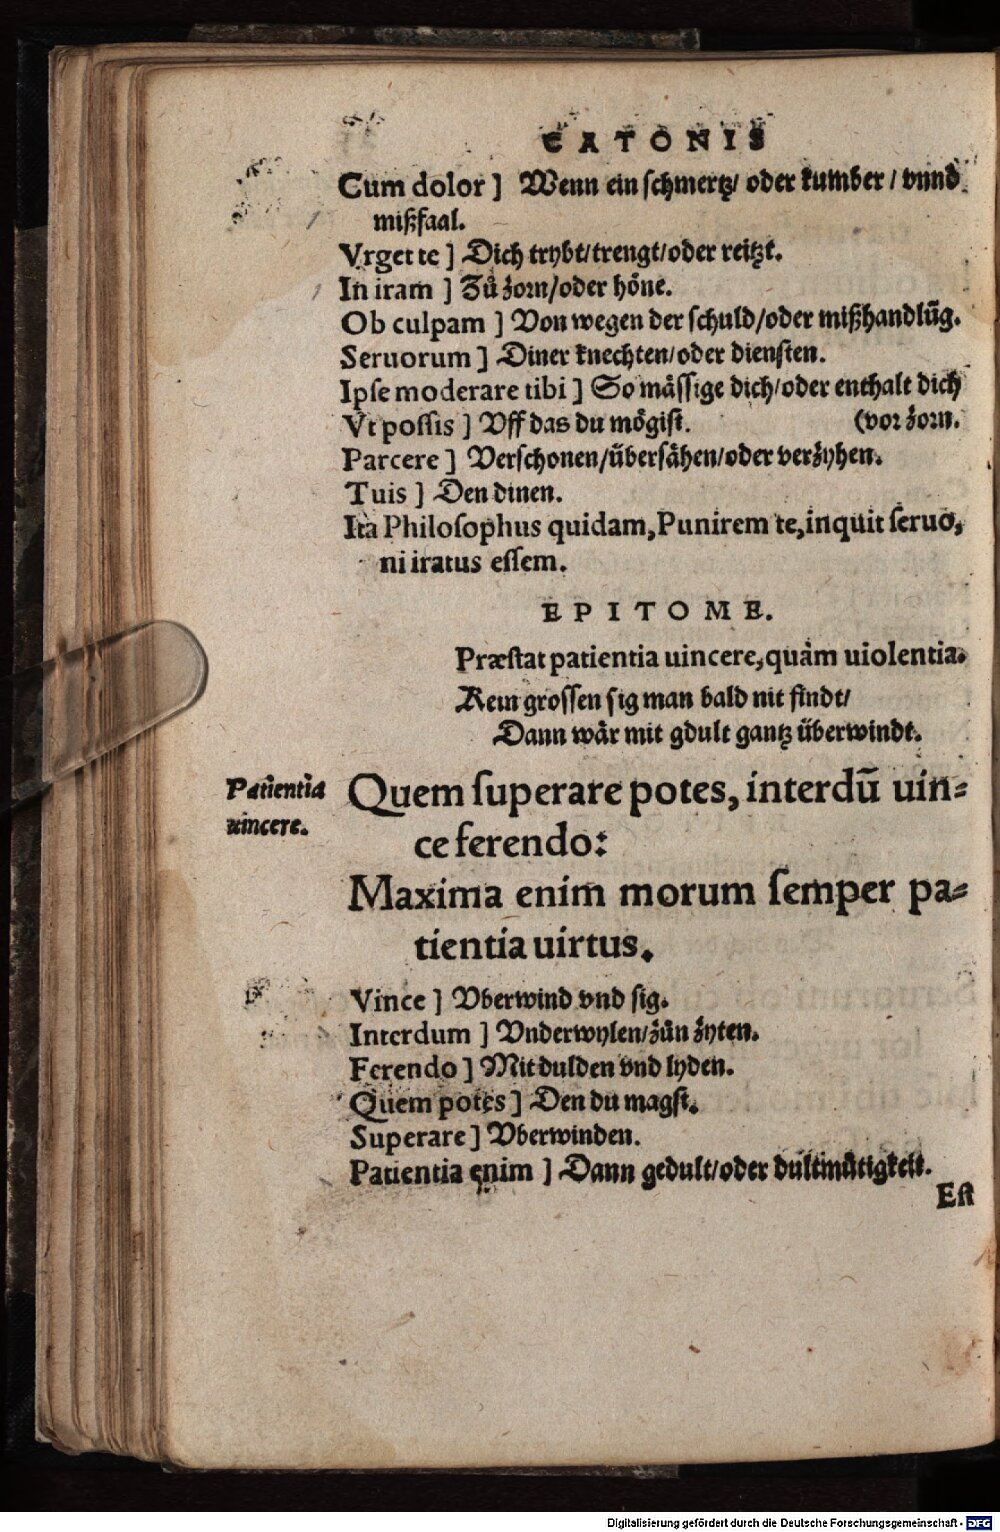 CATONIS
Cum dolor] Wenn ein schmertz/ oder kumber / vnnd
mißfaal.
Vrget te] Dich trybt/trengt/oder reitzt.
In iram ] Zů zorn/oder höne.
Ob culpam ] Von wegen der schuld/oder mißhandlūg.
Seruorum] Diner knechten/oder diensten.
Ipse moderare tibi ] So mässige dich/oder enthalt dich
Vt possis ] Vff das du mögist. (vor zorn.
Parcere ] Verschonen/übersähen/oder verzyhen.
Tuis ] Den dinen.
Ita Philosophus quidam, Punirem te, inquit seruo,
ni iratus essem.
EPITOME.
Præstat patientia uincere, quàm uiolentia.
Kein grossen sig man bald nit findt/
Dann wär mit gdult gantz überwindt.
Patientia
uincere.
Quem superare potes, interdū uin-
ce ferendo:
Maxima enim morum semper pa-
tientia uirtus.
Vince ] Vberwind vnd sig.
Interdum ] Vnderwylen/zůn zyten.
Ferendo ] Mit dulden vnd lyden.
Quem potes ] Den du magst.
Superare ] Vberwinden.
Patientia enim ] Dann gedult/oder dultmůtigkeit.
Est
Digitalisierung gefördert durch die Deutsche Forschungsgemeinschaft - DFG